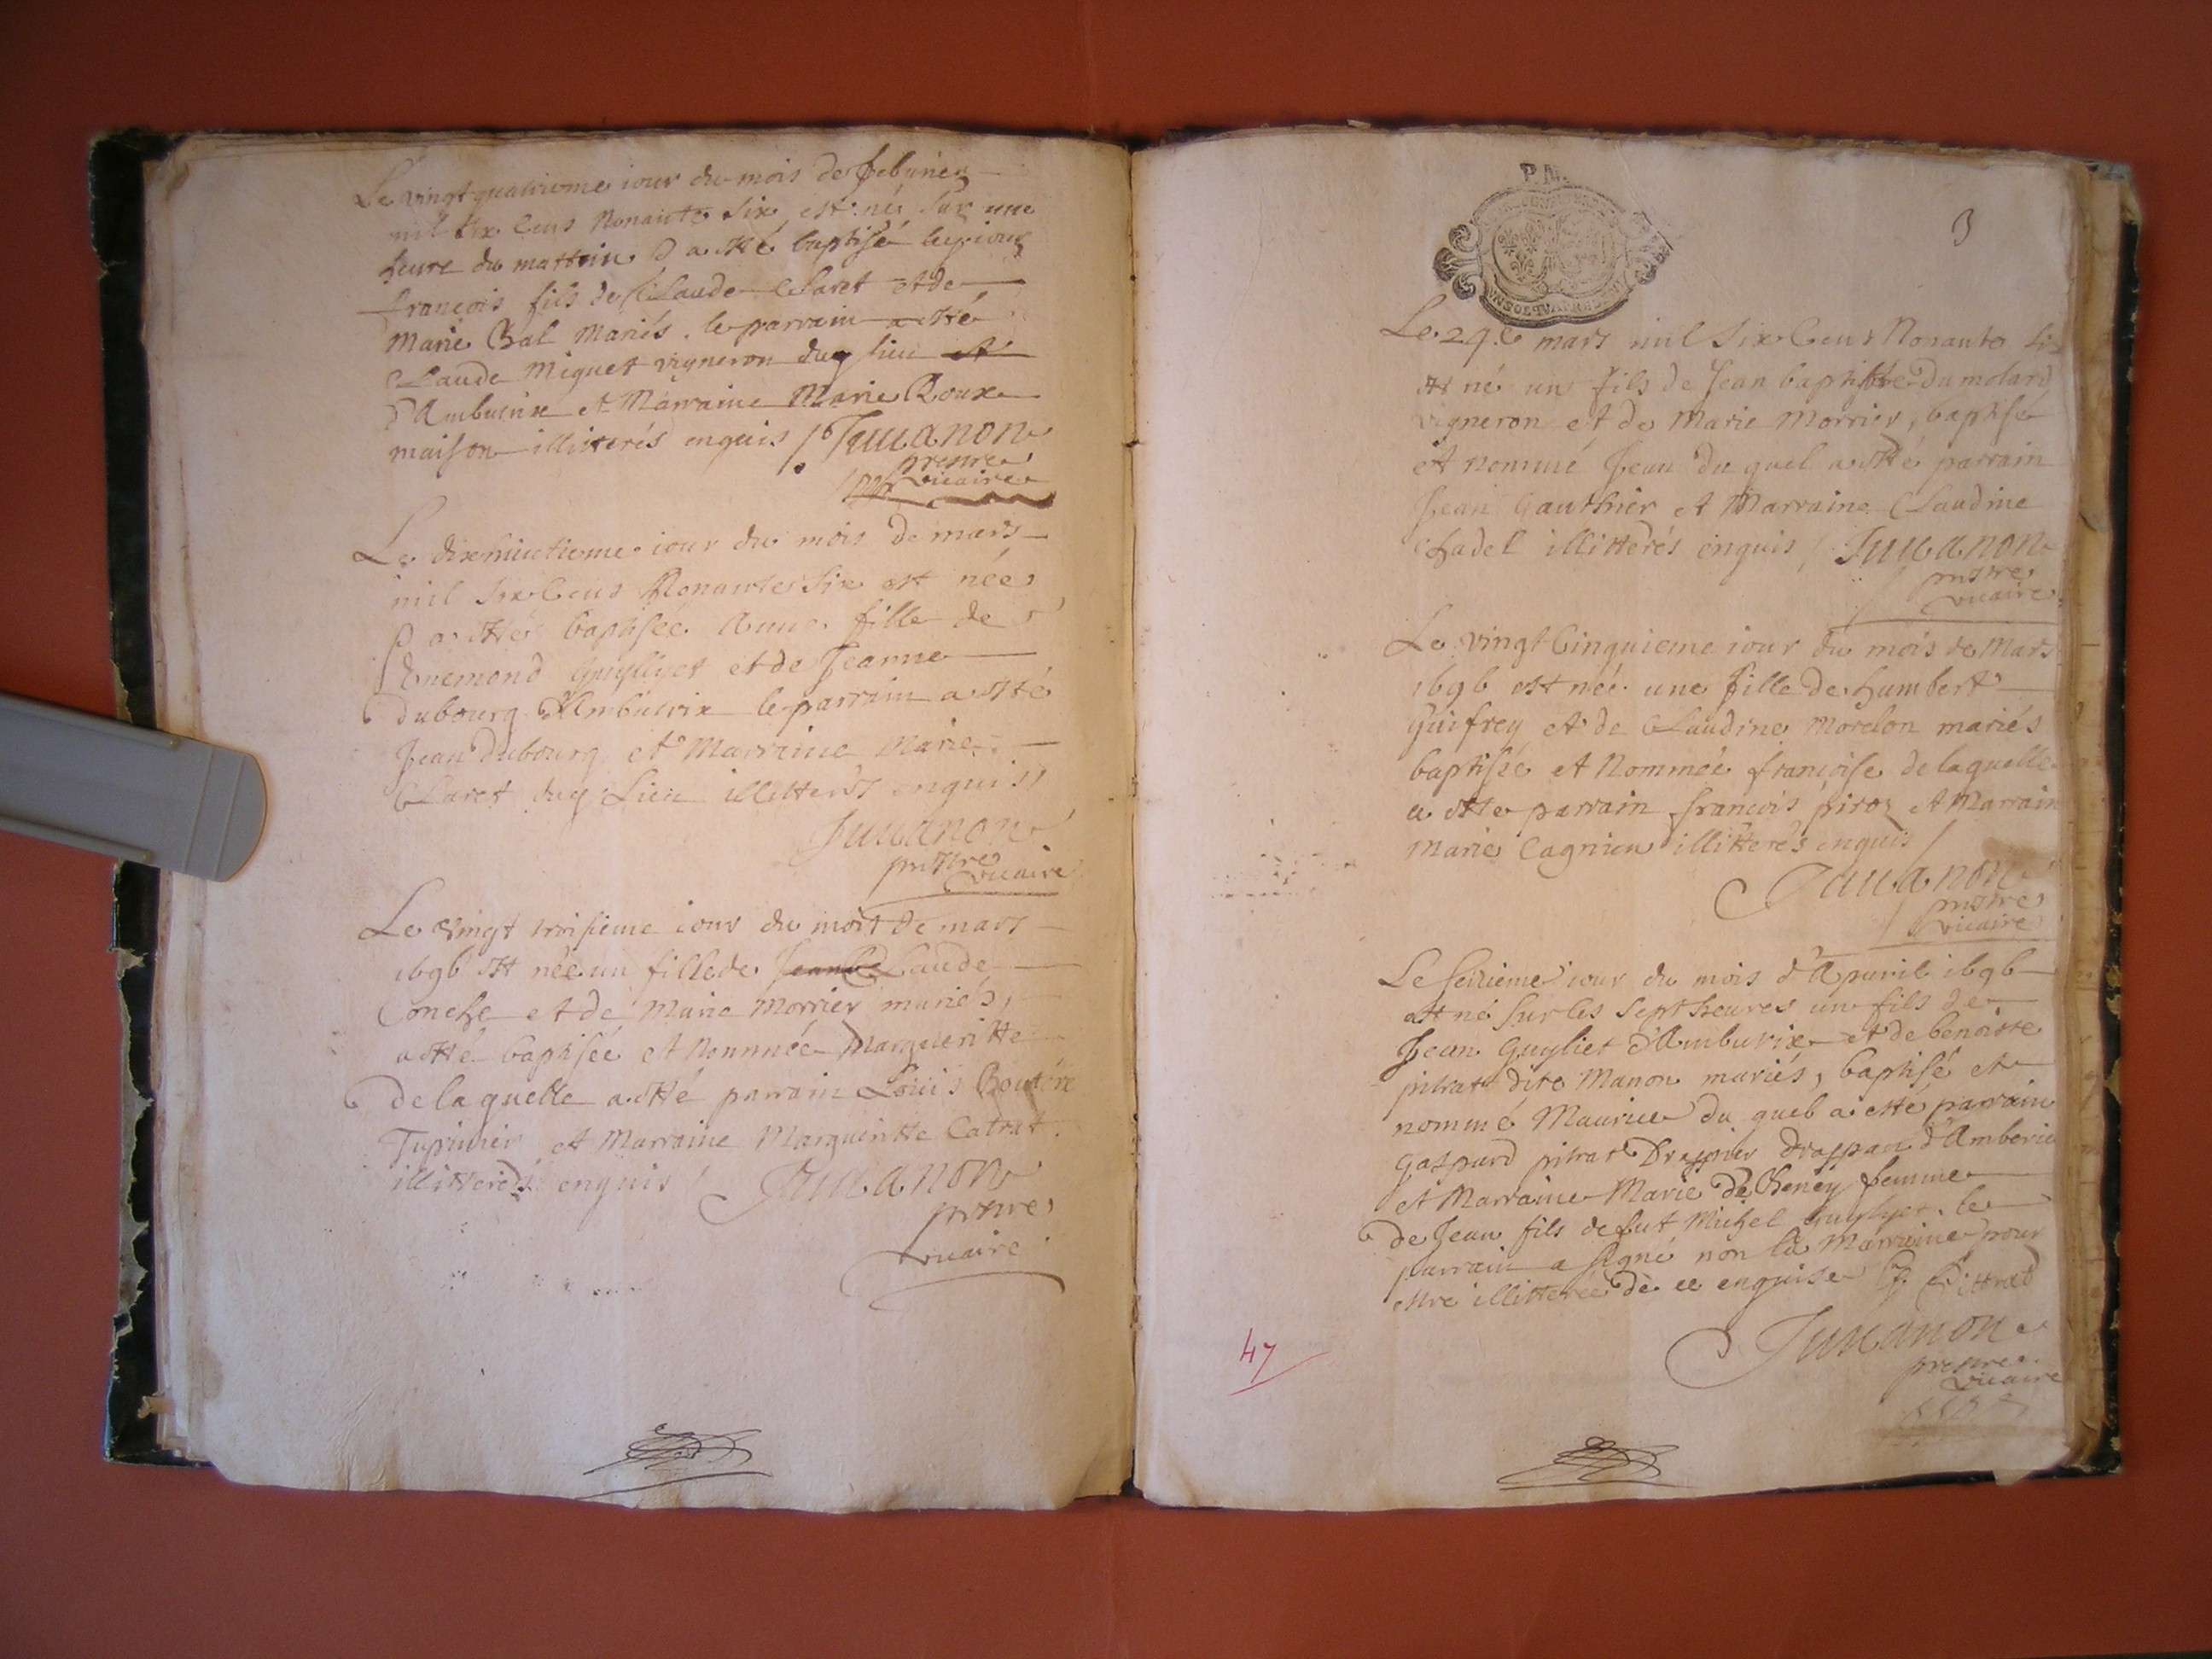 Le vingt quatrieme iour du mois de febvrier
mil six Cens Nonante six est né sur une
heure du mattin & a esté baptisé
françois fils de Claude Claret et de
Marie Bal Mariés. le parrain a esté
Claude Miguet vigneron dud lieu
d'Ambuvrix et Marraine Marie Roux
maison illitterés enquis / Juuanon
prestre
vicaire
Le dixhuictieme iour du mois de mars
mil six Cens Nonante six est née
& a esté baptisée Anne fille de
Enemond Guyliet et de Jeanne
dubourg d'Ambuvrix le parrain a esté
Jean dubourg et Marraine Marie
Claret dud Lieu illitterés enquis
Juuanon
prestre
vicaire
Le vingt troisieme iour du mois de mars
1696 est née un fille de Claude
Conche et de Marie Morrier mariés,
a esté baptisée et Nommée Margueritte
de laquelle a esté parrain Louis
Tupinier et Marraine Margueritte Catrat
illitterés enquis / Juuanon
prestre
vicaire
3
Le 24.e mars mil Six Cens Nonante Six
est né un fils de Jean baptiste Dumolard
vigneron et de Marie Morrier, baptisé
et nommé Jean du quel a esté parrain
Jean Gauthier et Marraine Claudine
Chadel illitterés enquis / Juuanon
prestre
vicaire
Le vingt Cinquieme iour du mois de Mars
1696 est née une fille de humbert
Guifrey et de Claudine Morelon mariés
baptisée et Nommée françoise de laquelle
a esté parrain françois piroz et Marrain
Marie Cagnieu illitterés enquis /
Juuanon
prestre
vicaire
Le seizieme iour du mois d'Apuril 1696
est né sur les sept heures un fils de
Jean Guyliet d'Ambuvrix et de benoiste
pitrat dite Manon mariés, baptisé et
nommé Maurice du quel a esté parrain
Gaspard pitrat Drappier drappan d'Amberieu
et Marraine Marie De Cheney femme
de Jean fils de fut Michel Guylyet. le
parrain a signé non la Marraine pour
estre illitterée de ce enquise G. Pittrat
Juuanon
prestre
vicaire
47